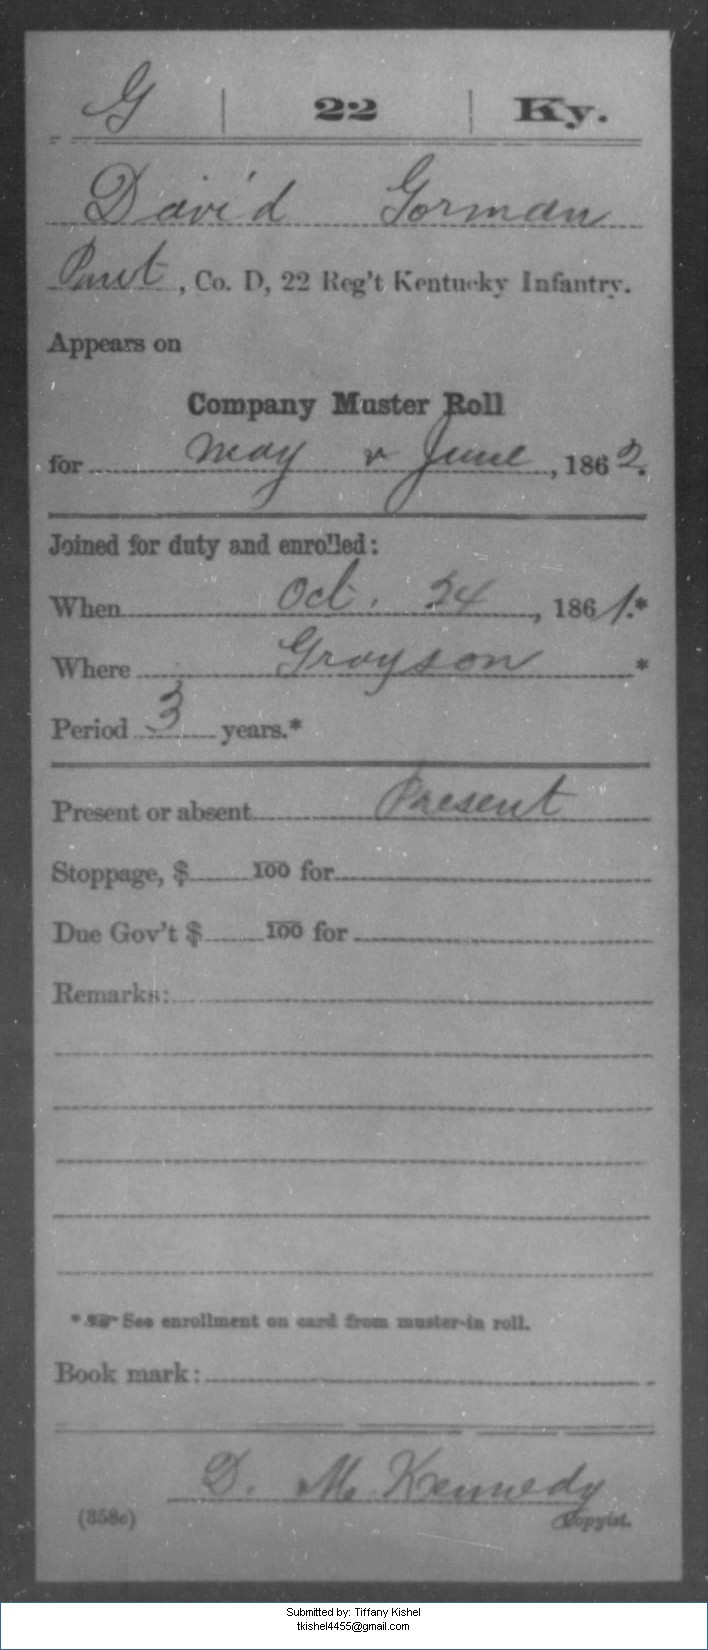 G | 22 | Ky.
David Gorman
Pvt, Co. D, 22 Reg't Kentucky Infantry.
Appears on
Company Muster Roll
for May & June, 1862.
Joined for duty and enrolled:
When Oct. 24, 1861.*
Where Grayson *
Period 3 years.*
Present or absent Present
Stoppage, $ 100 for
Due Gov't $ 100 for
Remarks:
* See enrollment on card from muster-in roll.
Book mark:
D. M. Kennedy
(358c) Copyist.
Submitted by: Tiffany Kishel
tkishel4455@gmail.com